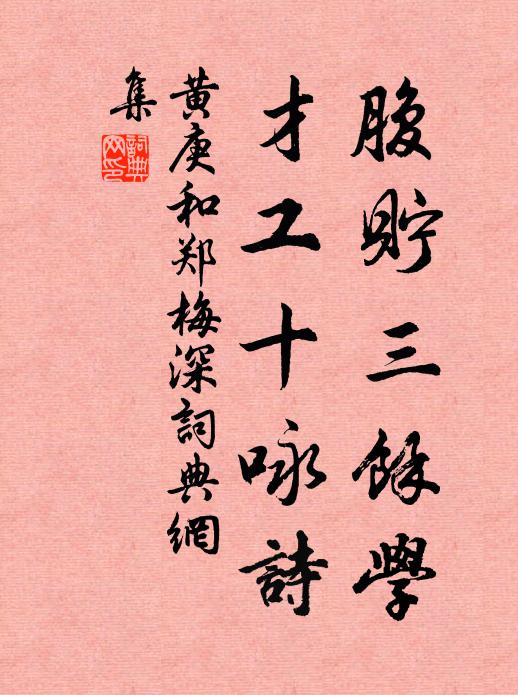 腹貯三餘學
才工十咏詩
黃庚和郑梅深詞典網
集
詞典网印